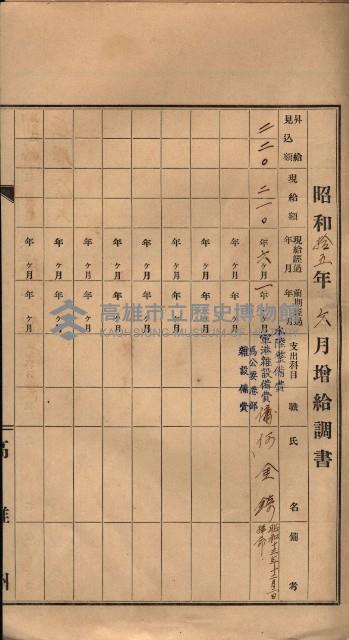 昭和拾五年六月增給調書
昇給見込額
現給額
現給經過年月
前期經過年月
支出科目
職
氏名
備考
二二〇
二一〇
年六ヶ月
年一ヶ月
水陸整備費
軍港雜設備費
馬公要港部
雜設備費
傭
何金錡
昭和十五年十二月一日
年ヶ月
年ヶ月
年ヶ月
年ヶ月
年ヶ月
年ヶ月
年ヶ月
年ヶ月
年ヶ月
年ヶ月
年ヶ月
年ヶ月
年ヶ月
年ヶ月
高雄州
高雄市立歷史博物館
KAOHSIUNG MUSEUM OF HISTORY